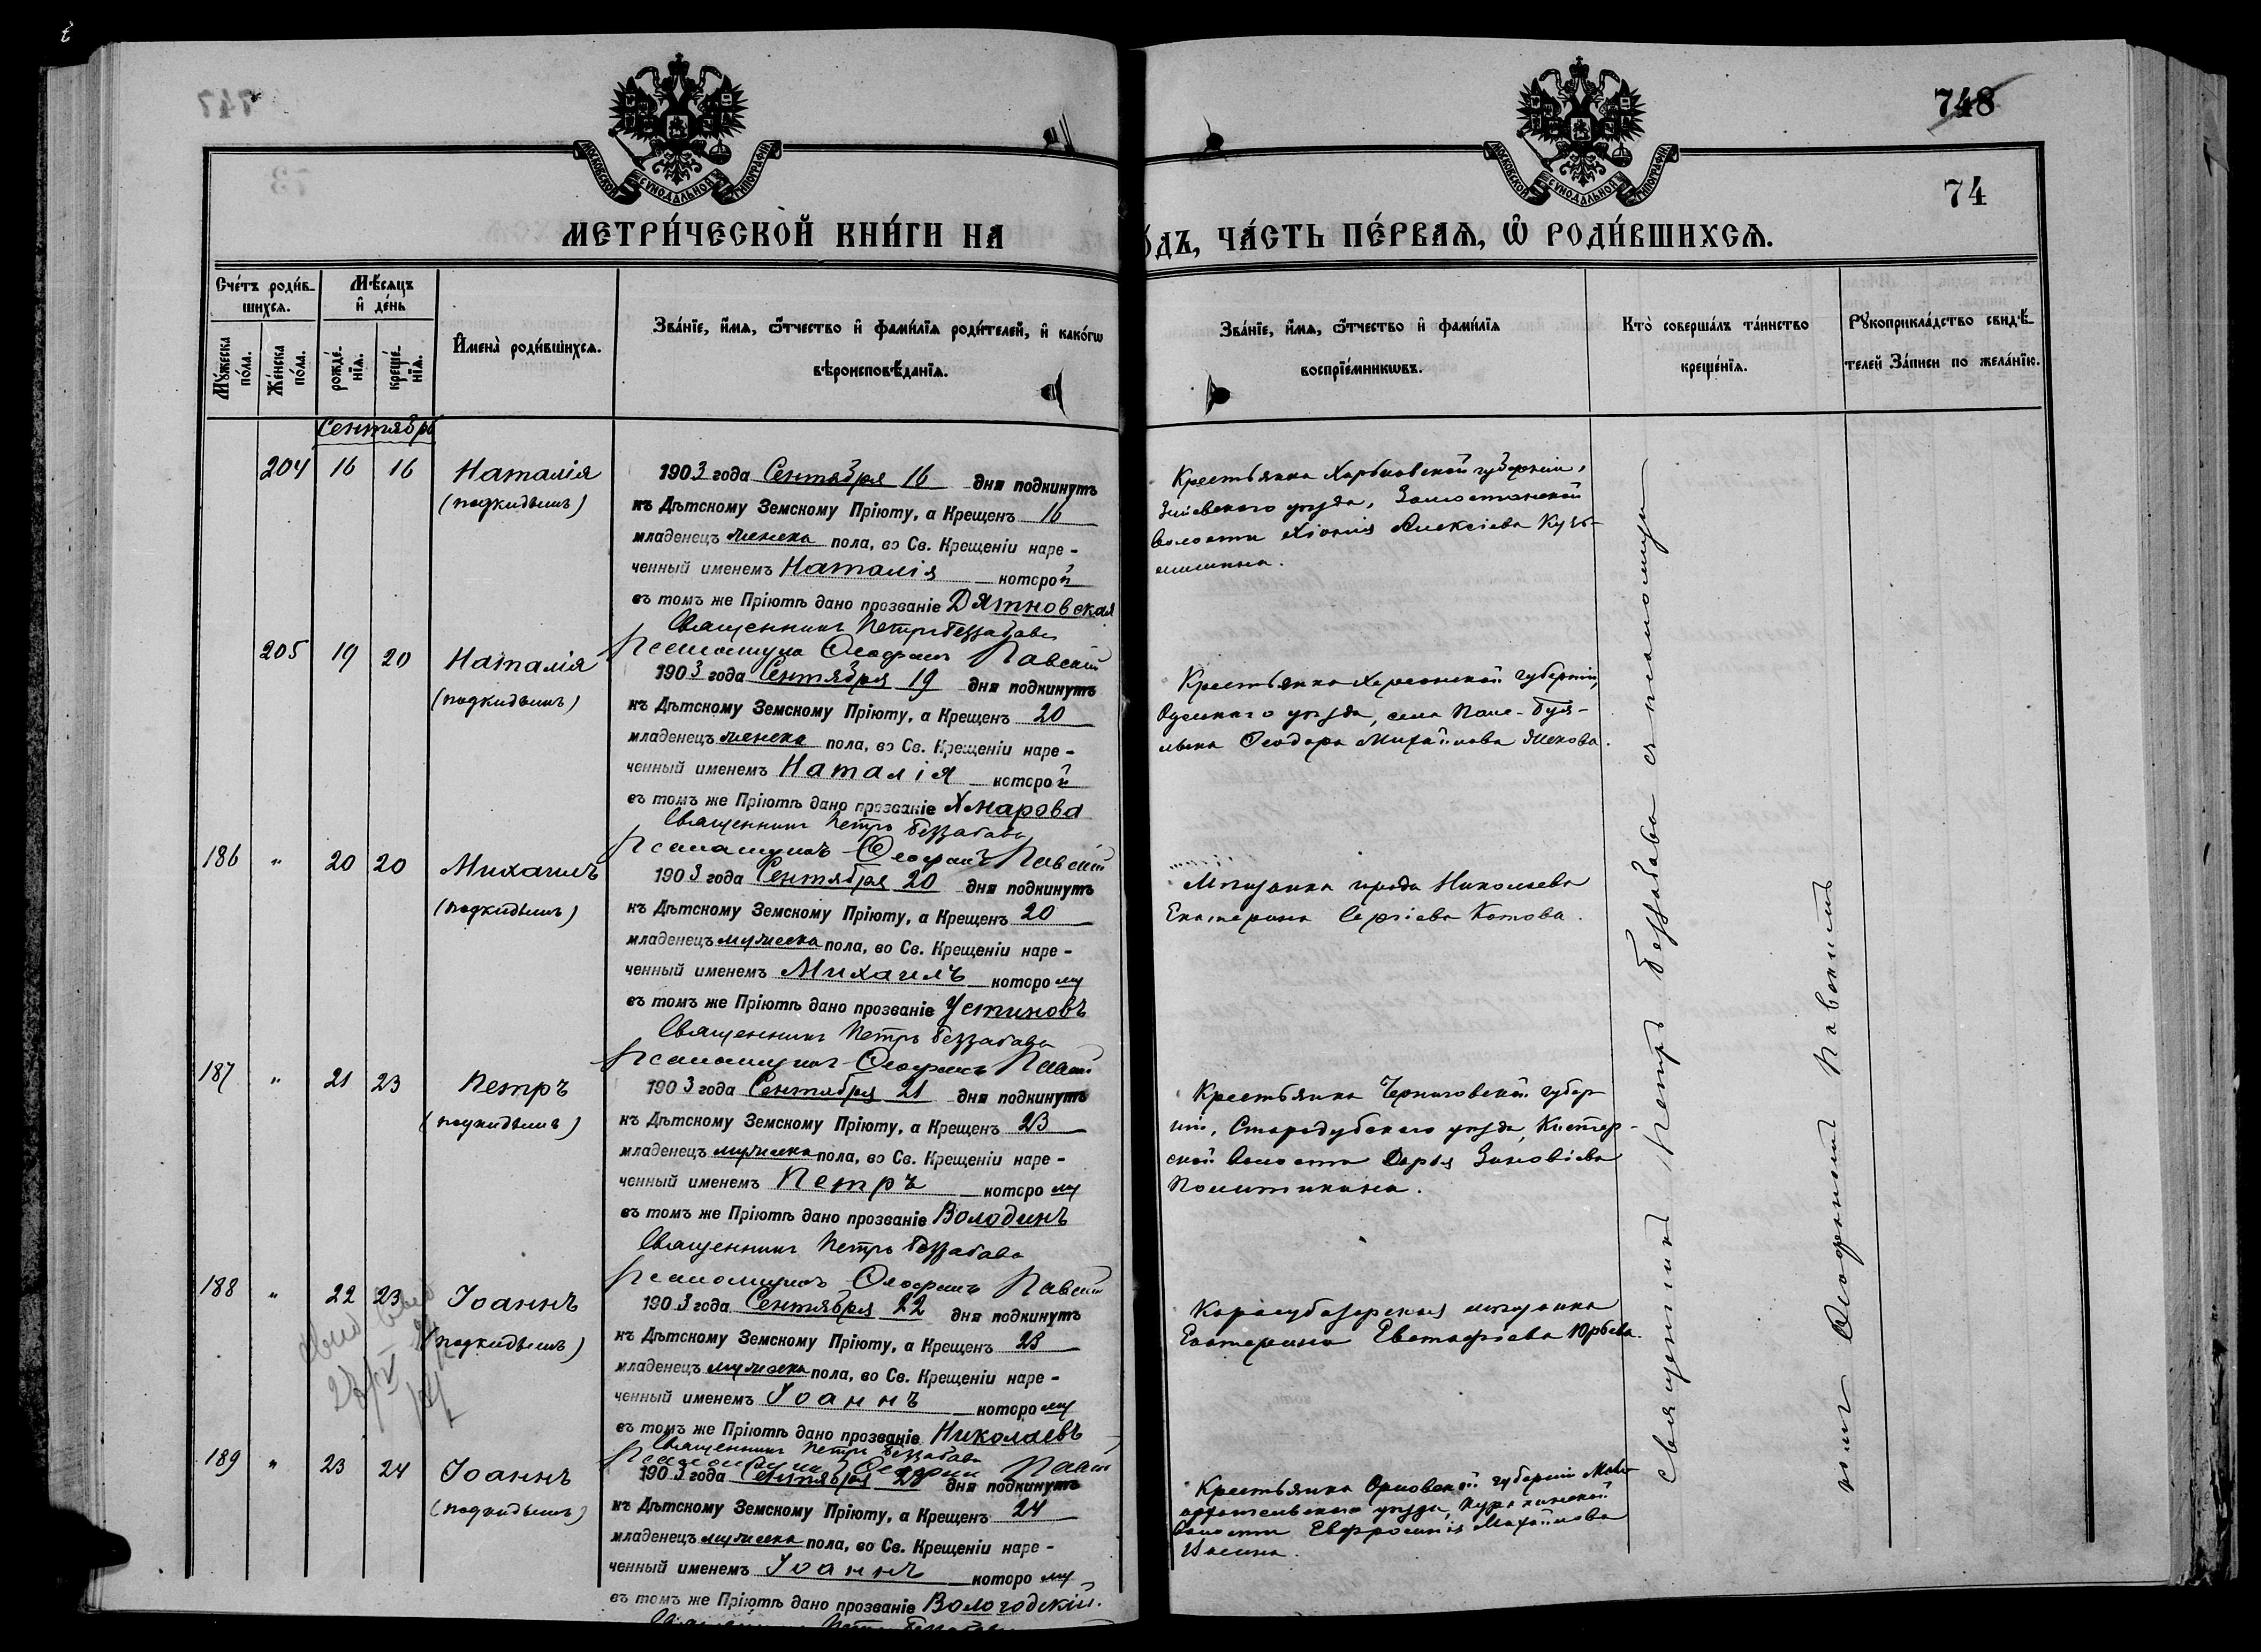 748
74
МОСКОВСКОЙ СѴНОДАЛЬНОЙ ТИПОГРАФІИ
МОСКОВСКОЙ СѴНОДАЛЬНОЙ ТИПОГРАФІИ
МЕТРИ́ЧЕСКОЙ КНИ́ГИ НА
ОДЪ, ЧА́СТЬ ПЕ́РВАЯ, Ѡ РОДИ́ВШИХСЯ.
Сче́тъ роди́в-
шихся.
Мꙋ́жеска по́ла.
Же́нска по́ла.
Мѣ́сяцъ
и҆ де́нь
рожде́-
нїя.
креще́-
нїя.
И҆мена̀ роди́вшихся.
Зва́нїе, и҆́мя, ѻ҆́тчество и҆ фами́лїа роди́телей, и҆ како́гѡ
вѣроисповѣ́данїя.
Зва́нїе, и҆́мя, ѻ҆́тчество и҆ фами́лїа
воспрїе́мникѡвъ.
Кто̀ соверша́лъ та́инство
креще́нїя.
Рꙋкоприкла́дство свидѣ́-
телей За́писи по жела́нїю.
Сентябрь
204 16 16 Наталія
(подкидышъ)
1903 года Сентября 16 дня подкинутъ
къ Дѣтскому Земскому Пріюту, а Крещенъ 16
младенецъ женска пола, во Св. Крещеніи наре-
ченный именемъ Наталія которой
въ томъ же Пріютѣ дано прозваніе Дятновская
Священникъ Петръ Беззабава
Псаломщикъ Ѳеофанъ Павскій
Крестьянка Харьковской губерніи,
Зміевского уѣзда, Замостянской
волости Хіонія Алексіева Кузь-
205 19 20 Наталія
(подкидышъ)
1903 года Сентября 19 дня подкинутъ
къ Дѣтскому Земскому Пріюту, а Крещенъ 20
младенецъ женска пола, во Св. Крещеніи наре-
ченный именемъ Наталія которой
въ томъ же Пріютѣ дано прозваніе Хмарова
Священникъ Петръ Беззабава
Псаломщикъ Ѳеофанъ Павскій
Крестьянка Херсонской губерніи,
Одесскаго уѣзда, села
Ѳеодора Михайлова
186 " 20 20 Михаилъ
(подкидышъ)
1903 года Сентября 20 дня подкинутъ
къ Дѣтскому Земскому Пріюту, а Крещенъ 20
младенецъ мужеска пола, во Св. Крещеніи наре-
ченный именемъ Михаилъ которому
въ томъ же Пріютѣ дано прозваніе Устиновъ
Священникъ Петръ Беззабава
Псаломщикъ Ѳеофанъ Павскій
Мѣщанка города Николаева
Екатерина Сергіева Котова.
187 " 21 23 Петръ
(подкидышъ)
1903 года Сентября 21 дня подкинутъ
къ Дѣтскому Земскому Пріюту, а Крещенъ 23
младенецъ мужеска пола, во Св. Крещеніи наре-
ченный именемъ Петръ которому
въ томъ же Пріютѣ дано прозваніе Володинъ
Священникъ Петръ Беззабава
Псаломщикъ Ѳеофанъ Павскій
Крестьянка Черниговской губер-
ніи, Стародубскаго уѣзда, Кистер-
ской волости Дарья Зиновіева
Политикина.
188 " 22 23 Іоаннъ
(подкидышъ)
1903 года Сентября 22 дня подкинутъ
къ Дѣтскому Земскому Пріюту, а Крещенъ 23
младенецъ мужеска пола, во Св. Крещеніи наре-
ченный именемъ Іоаннъ которому
въ томъ же Пріютѣ дано прозваніе Николаевъ
Священникъ Петръ Беззабава
Псаломщикъ Ѳеофанъ Павскій
Карасубазарская мѣщанка
Екатерина Евстафіева Юрьева.
189 " 23 24 Іоаннъ
(подкидышъ)
1903 года Сентября 23 дня подкинутъ
къ Дѣтскому Земскому Пріюту, а Крещенъ 24
младенецъ мужеска пола, во Св. Крещеніи наре-
ченный именемъ Іоаннъ которому
въ томъ же Пріютѣ дано прозваніе Вологодскій.
Крестьянка Орловской губерніи Мало-
архангельскаго уѣзда, Куракинской
волости Евфросинія Михайлова
Священникъ Петръ Беззабава съ псаломщи-
комъ Ѳеофаномъ Павскимъ